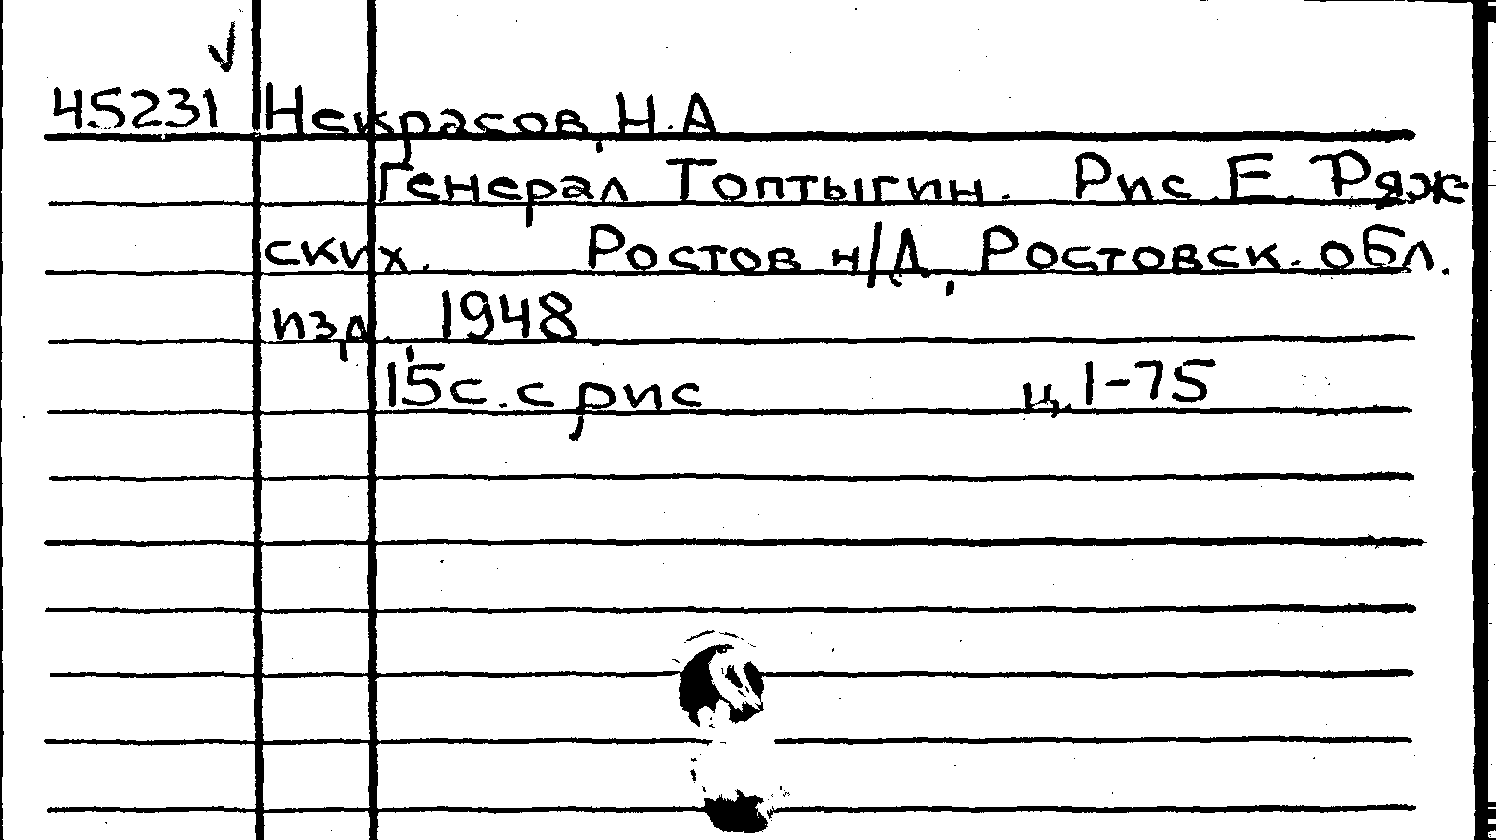 45231 Некрасов, Н.А
Генерал Топтыгин. Рис. Е. Ряж-
ских. Ростов н/Д, Ростовск. обл.
изд., 1948
15с. с рис ц. 1-75